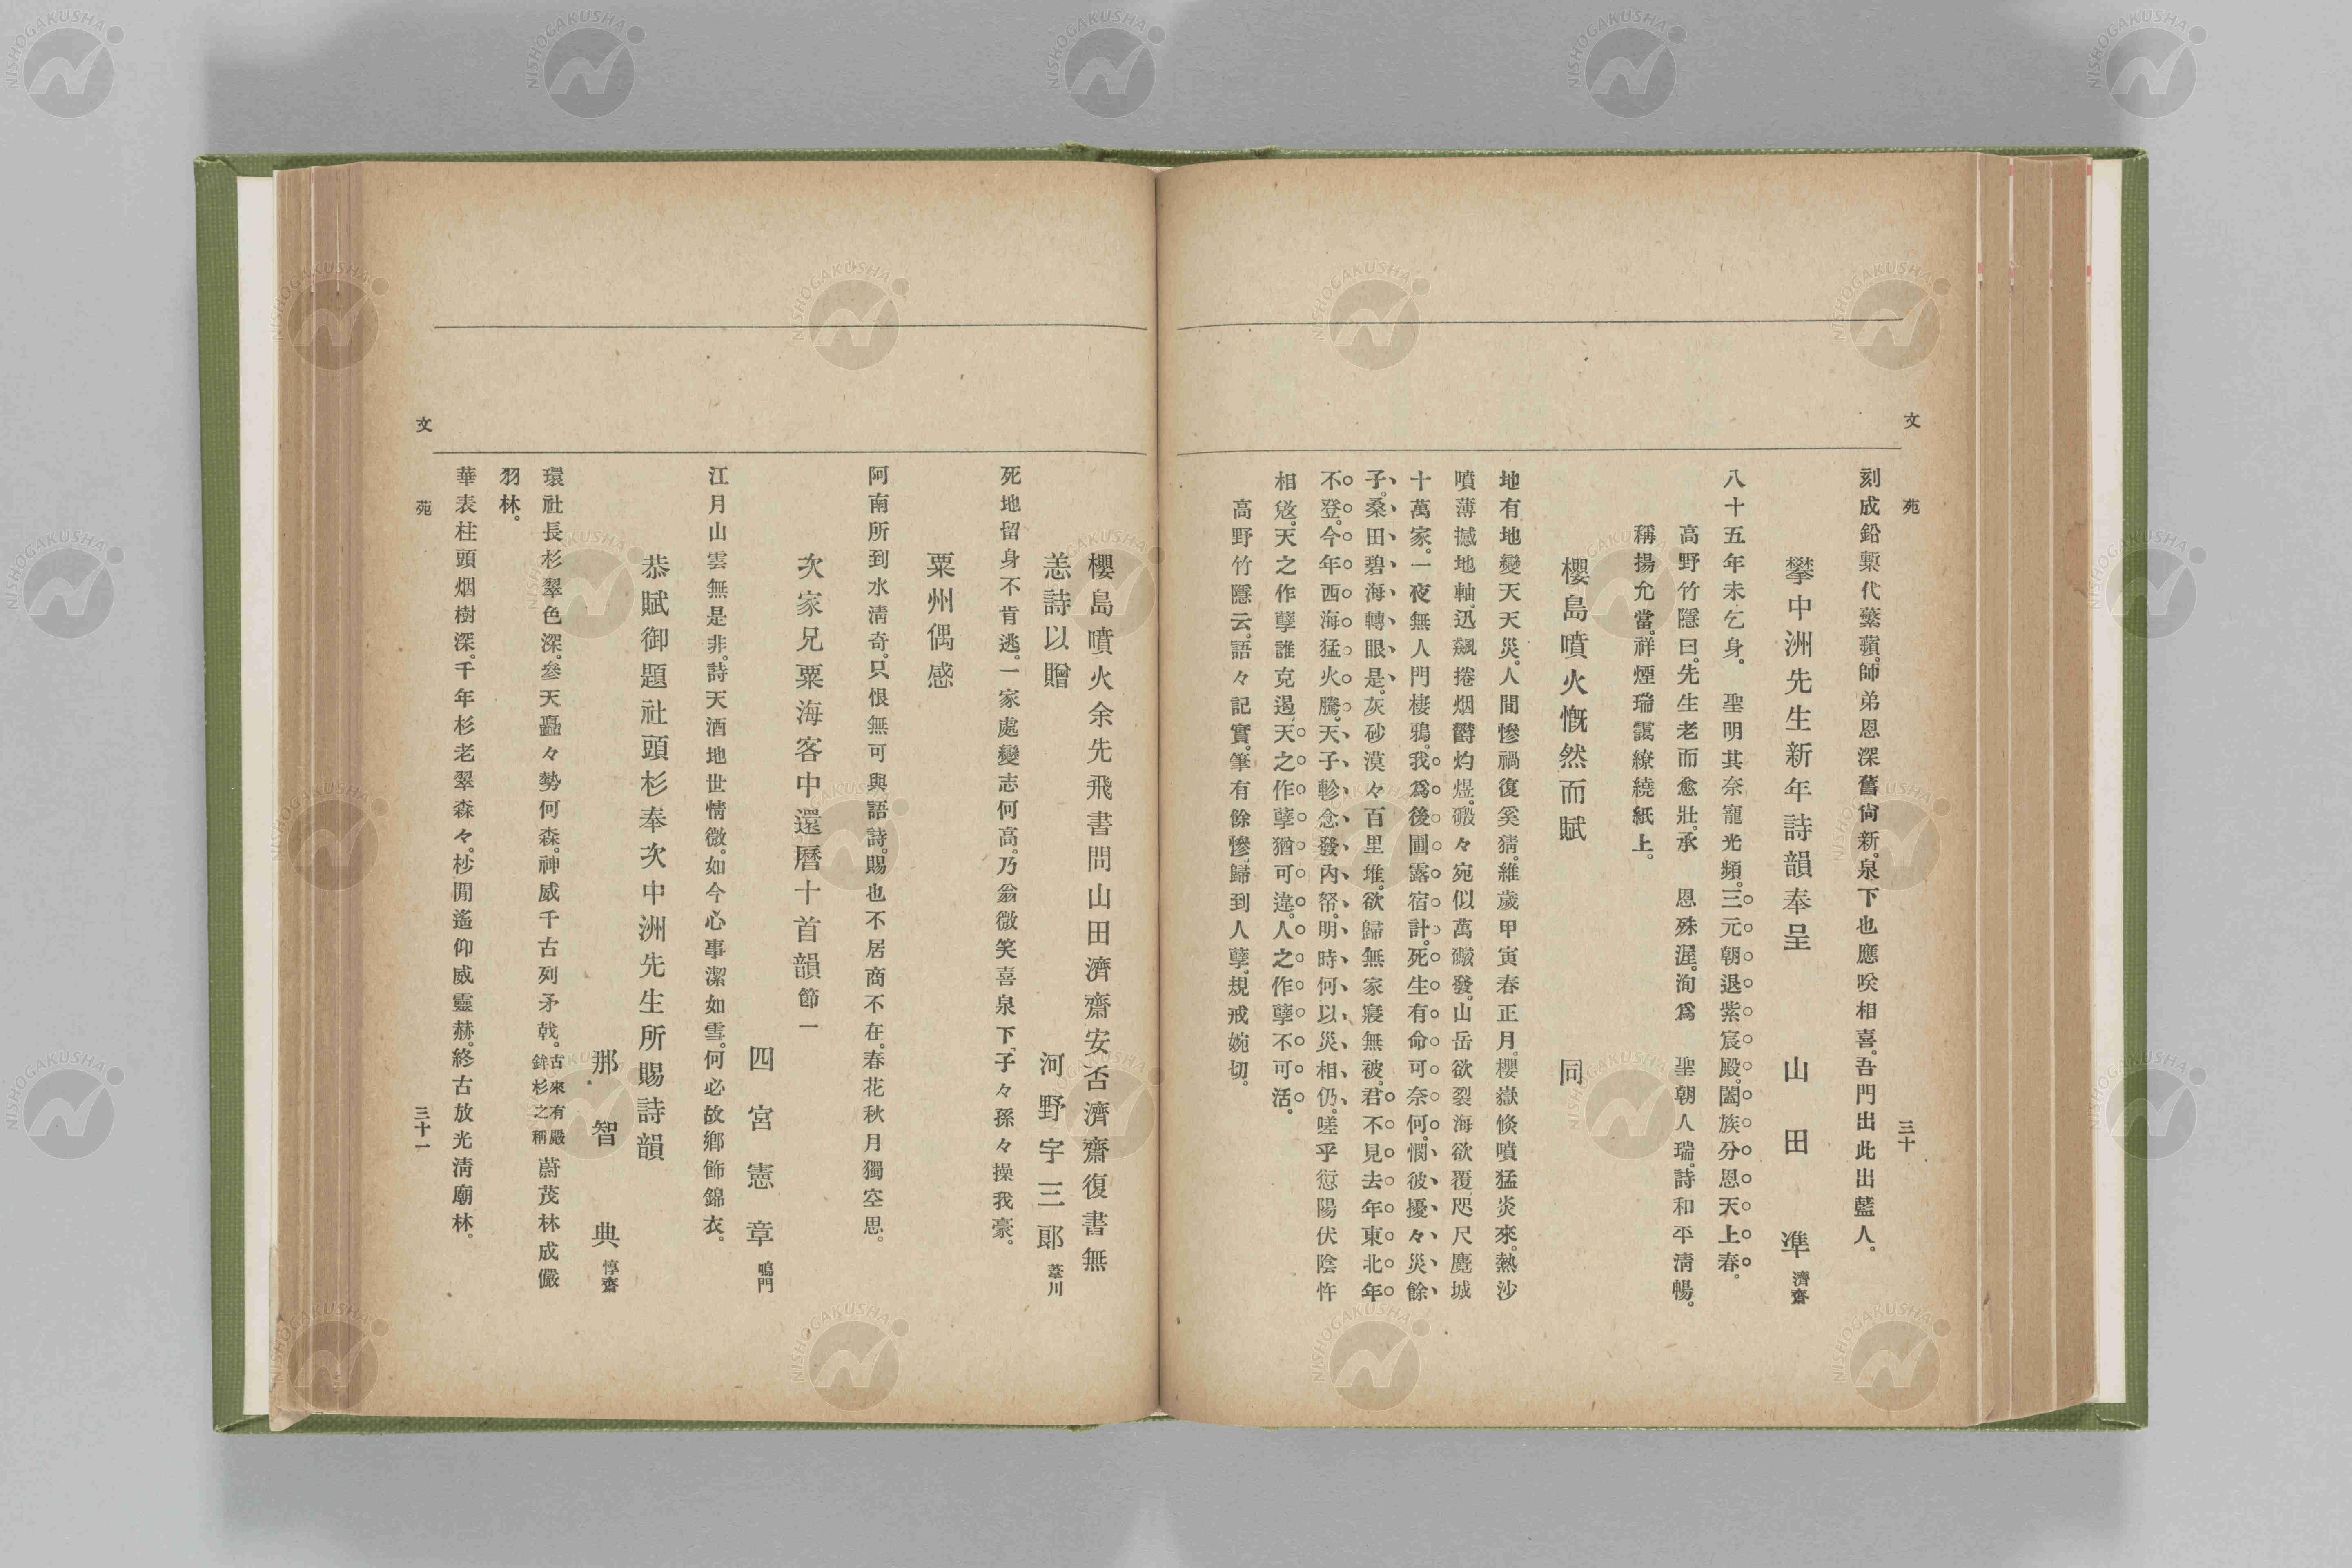 文 苑 三十
刻成鉛槧代蘩蘋。師弟恩深舊尙新。泉下也應咲相喜。吾門出此出藍人。
攀中洲先生新年詩韻奉呈 山田準 濟齋
八十五年未乞身。聖明其奈寵光頻。三元朝退紫宸殿。闔族分恩天上春。
高野竹隱曰。先生老而愈壯。承 恩殊渥。洵爲 聖朝人瑞。詩和平淸暢。
稱揚允當。祥煙瑞靄繚繞紙上。
櫻島噴火慨然而賦 同
地有地變天天災。人間慘禍復奚猜。維歲甲寅春正月。櫻嶽倏噴猛炎來。熱沙
噴薄撼地軸。迅飆捲烟欝灼煜。磤々宛似萬礟發。山岳欲裂海欲覆。咫尺麑城
十萬家。一夜無人門棲鴉。我爲後圃露宿計。死生有命可奈何。憫彼擾々災餘
子。桑田碧海轉眼是。灰砂漠々百里堆。欲歸無家寢無被。君不見去年東北年
不登。今年西海猛火騰。天子軫念發內帑。明時何以災相仍。嗟乎愆陽伏陰忤
相尅。天之作孼誰克遏。天之作孼猶可違。人之作孼不可活。
高野竹隱云。語々記實。筆有餘慘。歸到人孼。規戒婉切。
櫻島噴火余先飛書問山田濟齋安否濟齋復書無
恙詩以贈 河野宇三郞 葦川
死地留身不肯逃。一家處變志何高。乃翁微笑喜泉下。子々孫々操我豪。
粟州偶感
阿南所到水淸奇。只恨無可與語詩。賜也不居商不在。春花秋月獨空思。
次家兄粟海客中還曆十首韻 節一
四宮憲章 鳴門
江月山雲無是非。詩天酒地世情微。如今心事潔如雪。何必故鄕飾錦衣。
恭賦御題社頭杉奉次中洲先生所賜詩韻
那智典 惇齋
環社長杉翠色深。參天矗々勢何森。神威千古列矛戟。古來有嚴鉾杉之稱 蔚茂林成儼
羽林。
華表柱頭烟樹深。千年杉老翠森々。杪閒遙仰威靈赫。終古放光淸廟林。
文 苑 三十一
NISHOGAKUSHA